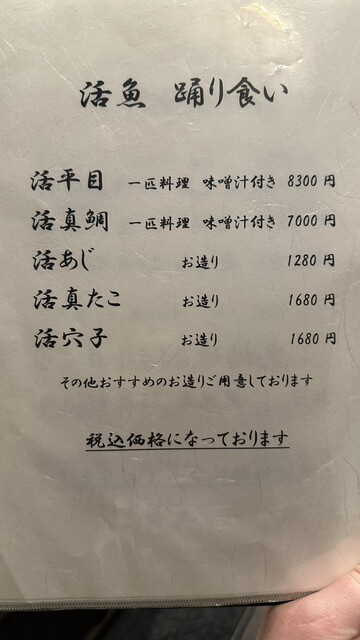 活魚 踊り食い
活平目 一匹料理 味噌汁付き 8300 円
活真鯛 一匹料理 味噌汁付き 7000 円
活あじ お造り 1280 円
活真たこ お造り 1680 円
活穴子 お造り 1680 円
その他おすすめのお造りご用意しております
税込価格になっております